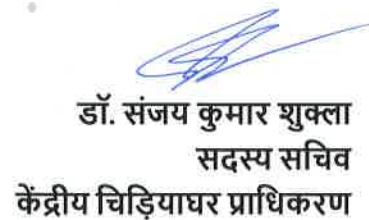 डॉ. संजय कुमार शुक्ला
सदस्य सचिव
केंद्रीय चिड़ियाघर प्राधिकरण